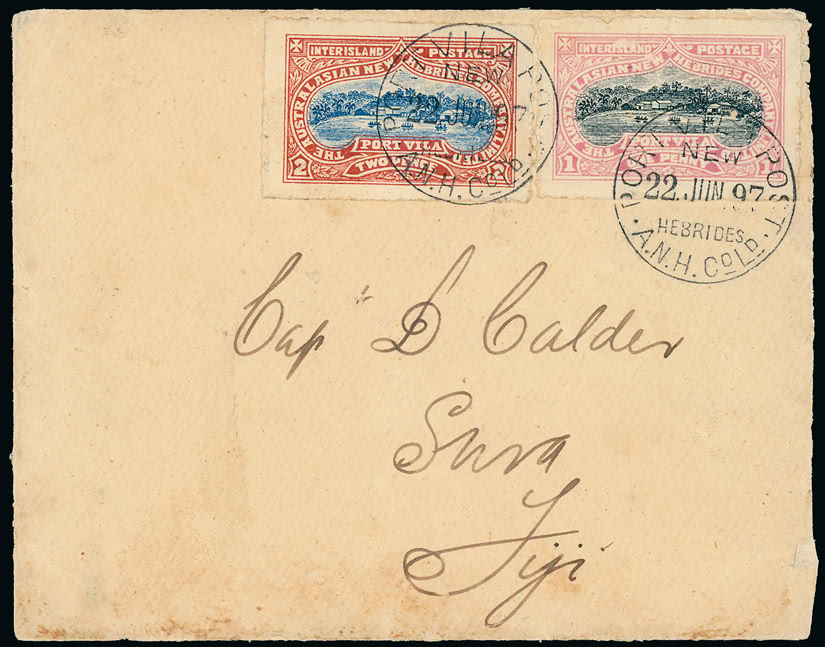 INTERISLAND POSTAGE
THE AUSTRALASIAN NEW HEBRIDES COMPANY LIMITED
PORT VILA
2 TWO PENCE 2
INTERISLAND POSTAGE
THE AUSTRALASIAN NEW HEBRIDES COMPANY LIMITED
1 ONE PENNY 1
VILA POST
NEW
22 JUN 97
A.N.H. CoLD.
PORT VILA POST
NEW
22 JUN 97
HEBRIDES
A.N.H. CoLD.
Cap D Calder
Suva
Fiji